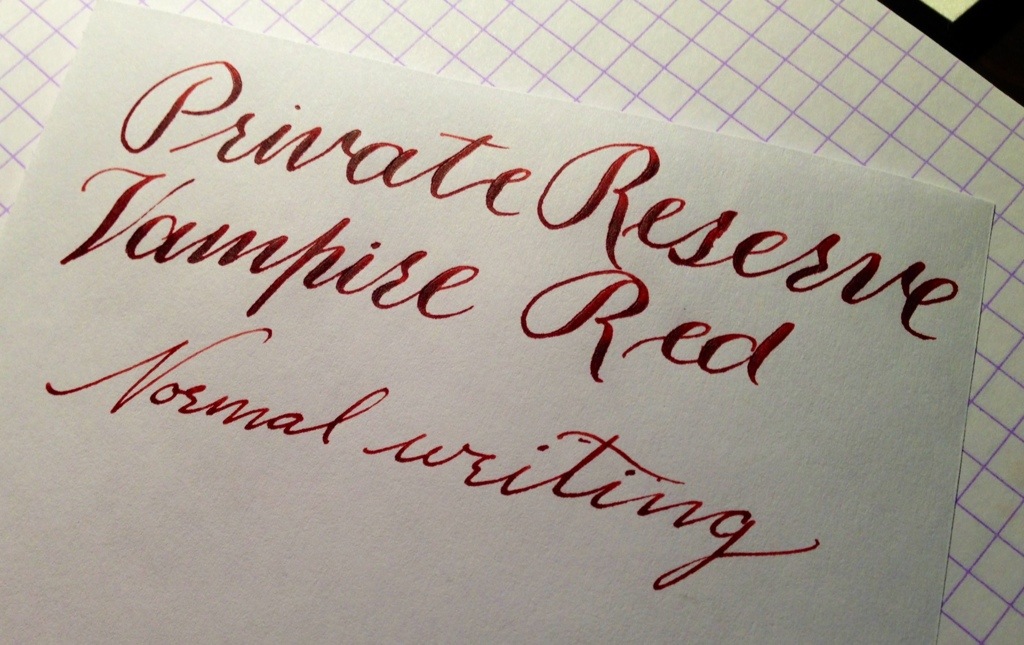 Private Reserve
Vampire Red
Normal writing